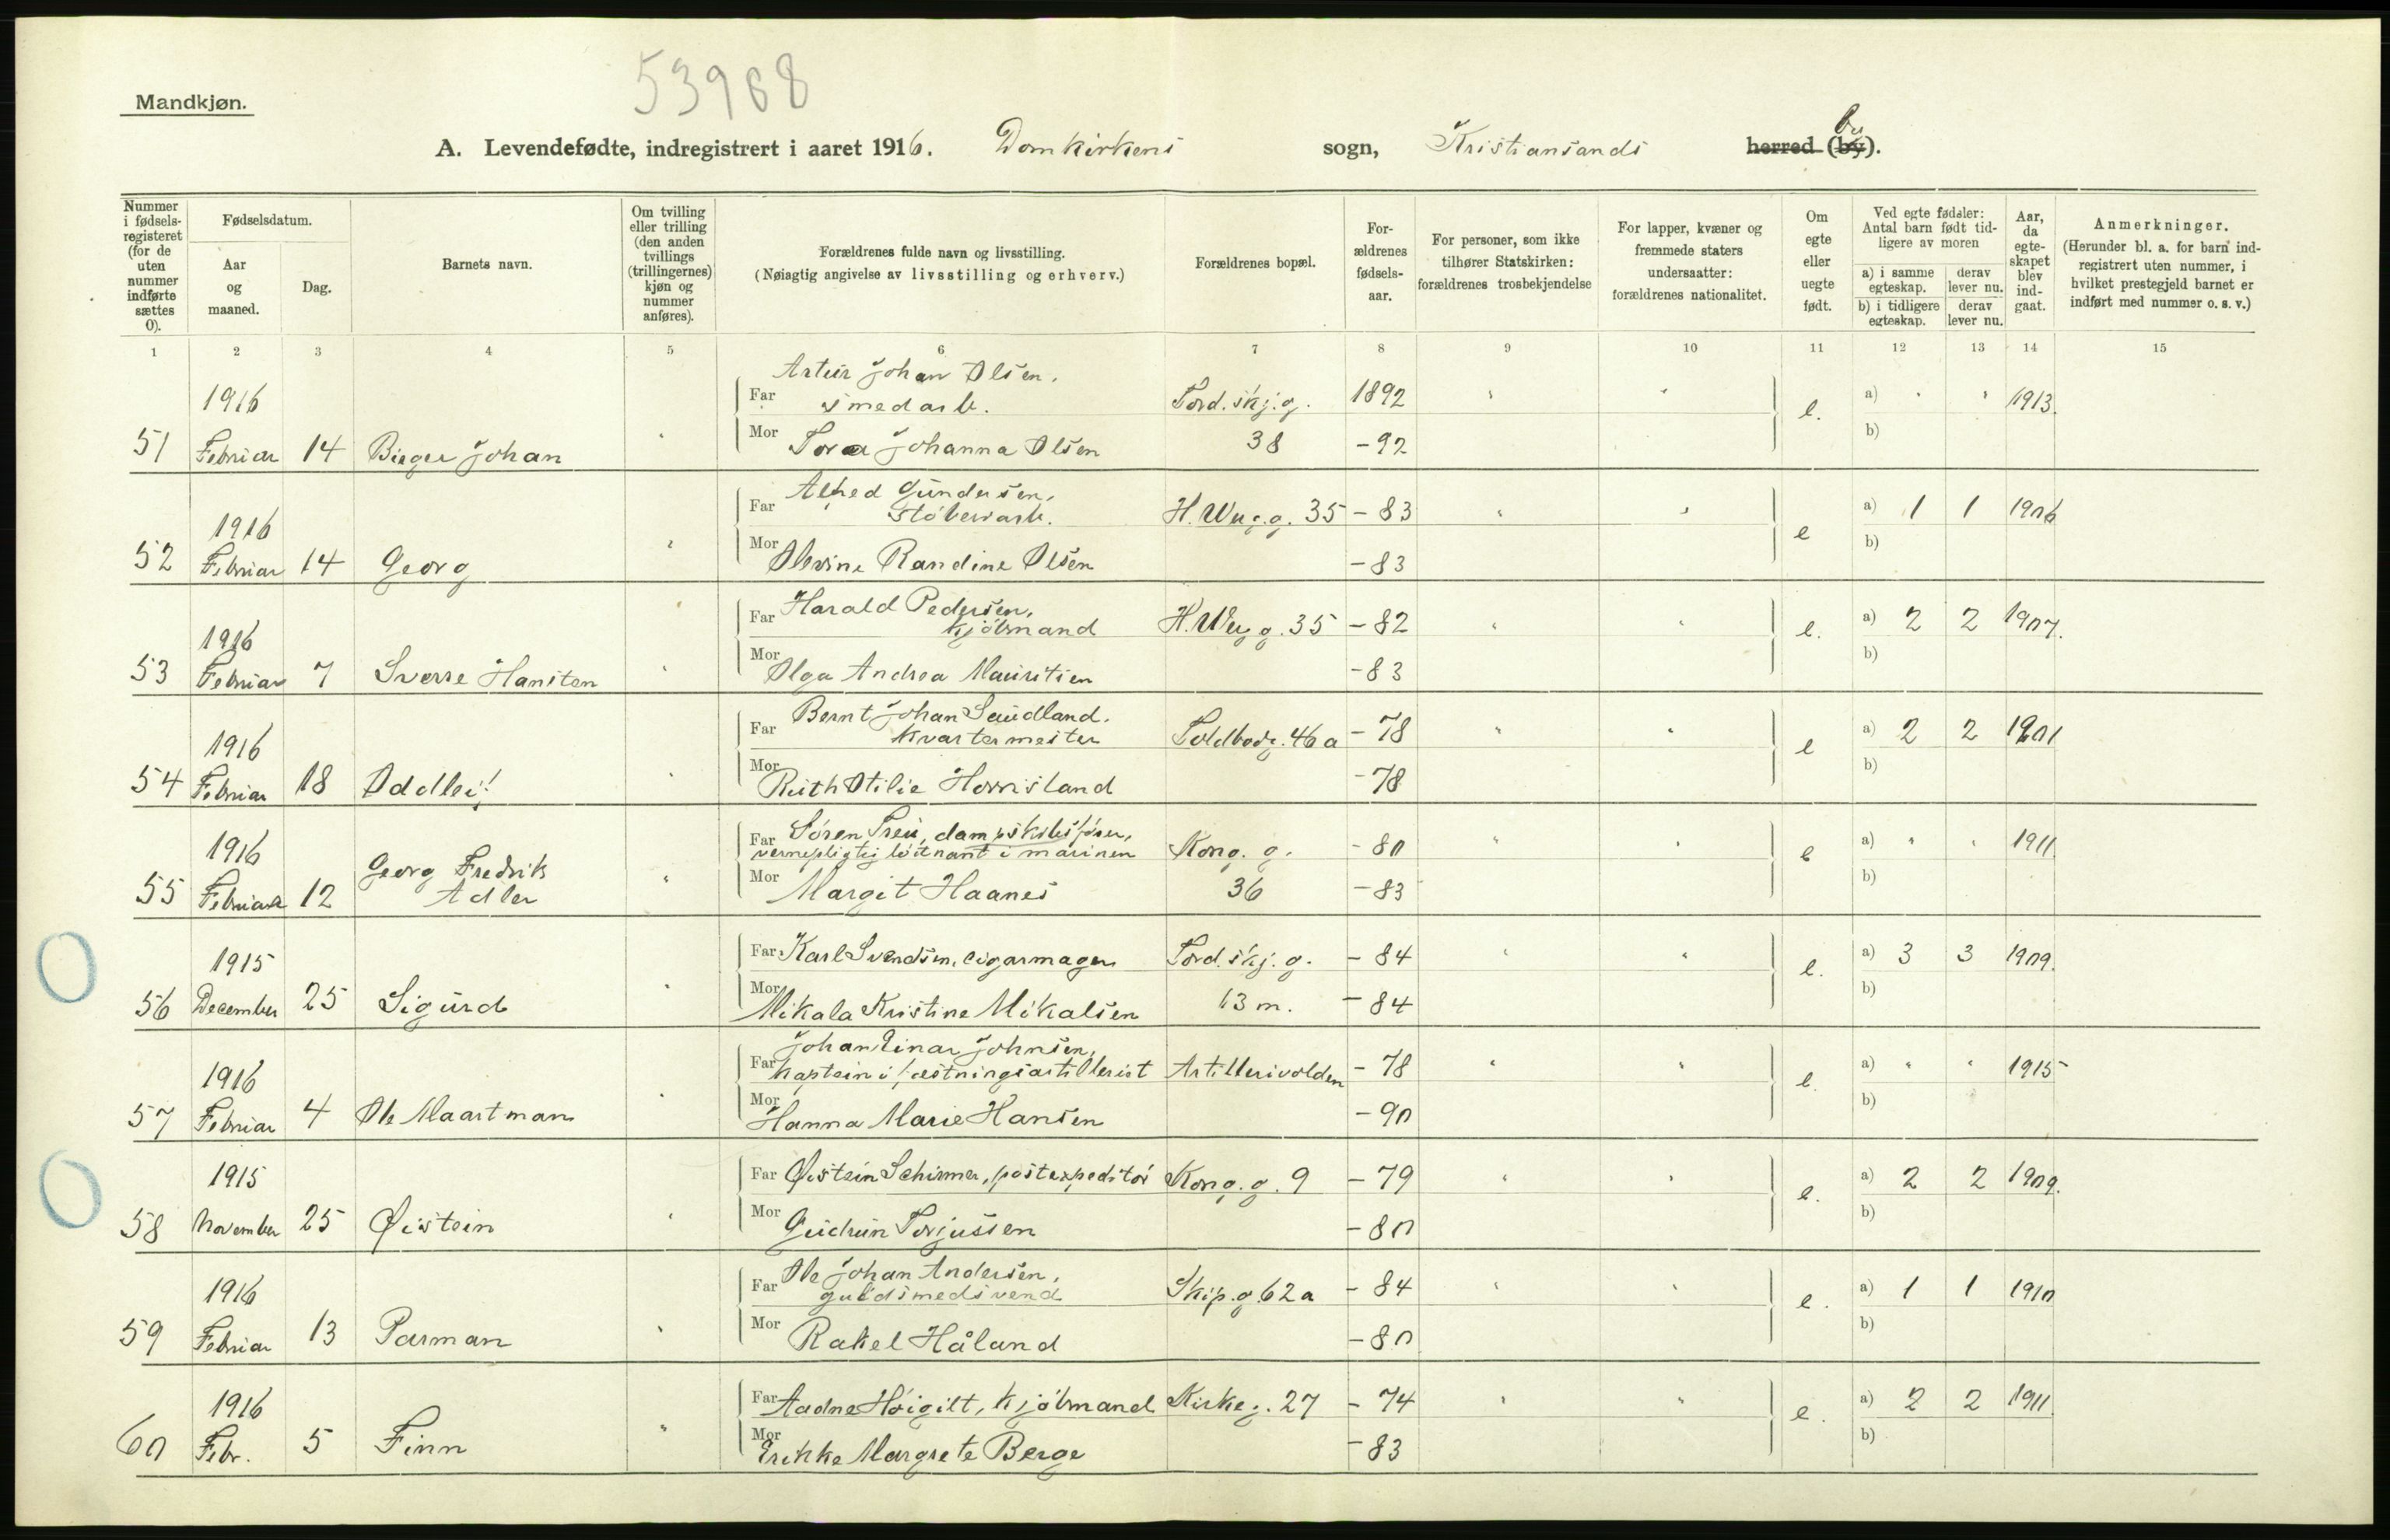 53968
Mandkjøn.
A. Levendefødte, indregistrert i aaret 1916. Domkirkens sogn, Kristiansands herred (by). by
Nummer i fødselsregisteret (for de uten nummer indførte sættes 0).
Fødselsdatum.
Aar og maaned.
Dag.
Barnets navn.
Om tvilling eller trilling (den anden tvillings (trillingernes) kjøn og nummer anføres).
Forældrenes fulde navn og livsstilling.
(Nøiagtig angivelse av livsstilling og erhverv.)
Forældrenes bopæl.
Forældrenes fødselsaar.
For personer, som ikke tilhører Statskirken: forældrenes trosbekjendelse
For lapper, kvæner og fremmede staters undersaatter: forældrenes nationalitet.
Om egte eller uegte født.
Ved egte fødsler: Antal barn født tidligere av moren
a) i samme egteskap. derav lever nu.
b) i tidligere egteskap. derav lever nu.
Aar, da egteskapet blev indgaat.
Anmerkninger.
(Herunder bl. a. for barn indregistrert uten nummer, i hvilket prestegjeld barnet er indført med nummer o. s. v.)
1 2 3 4 5 6 7 8 9 10 11 12 13 14 15
Artur Johan Olsen,
1916 Far smedarb. Tord.skj.g. 1892 " " e. a) " " 1913.
51 Februar 14 Birger Johan " Mor Tora Johanna Olsen 38 -92 b)
Alfred Gundersen,
1916 Far støberiarb. H.Werg.g. 35 -83 " " e a) 1 1 1906
52 Februar 14 Georg " Mor Olevine Randine Olsen -83 b)
Harald Pedersen,
1916 Far kjøbmand H.Werg.g. 35 -82 " " e. a) 2 2 1907.
53 Februar 7 Sverre Hansten " Mor Olga Andrea Mauritzen -83 b)
Bernt Johan Saudland.
1916 Far kvartermester Toldbodg. 46a -78 " " e a) 2 2 1901
54 Februar 18 Oddleif " Mor Ruth Otilie Horrisland -78 b)
Søren Treu, dampskibsfører,
1916 Far vernepligtig løitnant i marinen Kong. g. -80 " " e a) " " 1911
55 Februar 12 Georg Fredrik Adler " Mor Margit Haanes 36 -83 b)
1915 Far Karl Svendsen, cigarmager Tord.skj.g. -84 " " e. a) 3 3 1909.
56 December 25 Sigurd " Mor Mikala Kristine Mikalsen 13 m. -84 b)
Johan Einar Johnsen,
1916 Far kaptein i fæstningsartilleriet Artillerivolden -78 " " e. a) " " 1915
57 Februar 4 Ole Maartman " Mor Hanna Marie Hansen -90 b)
1915 Far Øistein Schirmer, postexpeditør Kong. g. 9 -79 " " e. a) 2 2 1909.
58 November 25 Øistein " Mor Gudrun Torjussen -80 b)
Ole Johan Andersen,
1916 Far guldsmedsvend Skip.g. 62a -84 " " e. a) 1 1 1910
59 Februar 13 Parman " Mor Rakel Håland -80 b)
1916 Far Aadne Høigilt, kjøbmand Kirkeg. 27 -74 " " e. a) 2 2 1911
60 Febr. 5 Finn " Mor Erikke Margrete Berge -83 b)